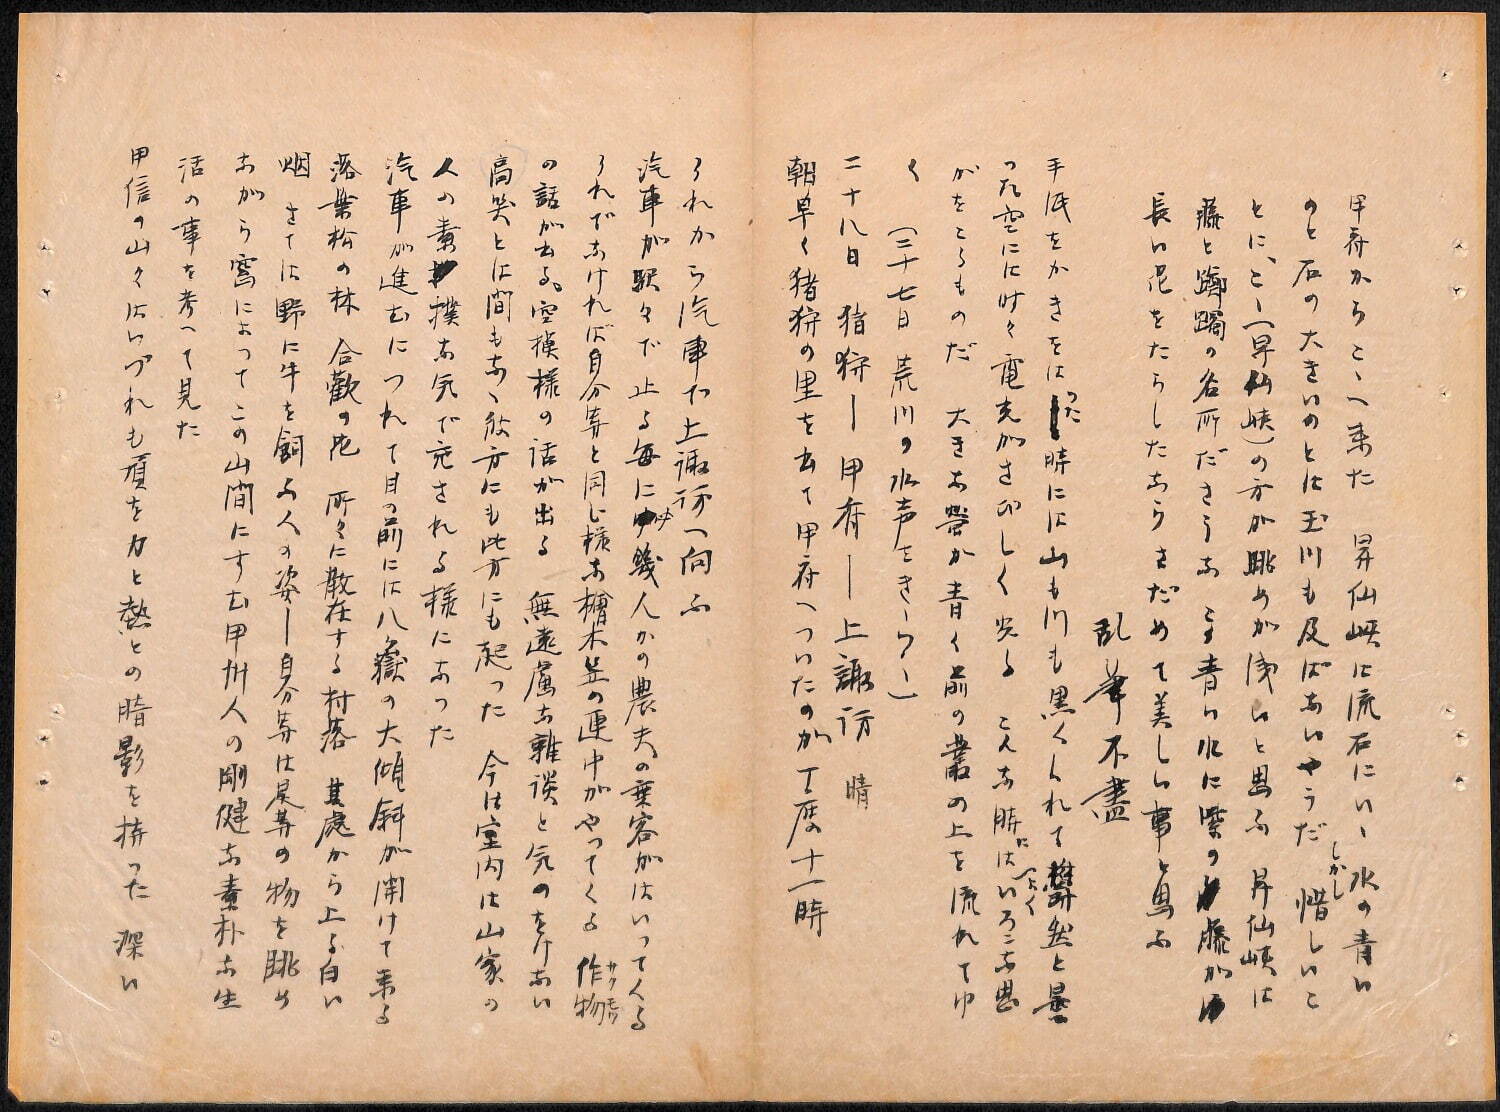 甲府からこゝへ来た 昇仙峡は流石にいゝ水の青い
のと石の大きいのとは玉川も及ばないやうだ しかし惜しいこ
とに、こゝ(昇仙峡)の方が眺めが浅いと思ふ 昇仙峡は
藤と躑躅の名所ださうな この青い水に紫の藤が
長い花をたらしたならさだめて美しい事と思ふ
乱筆不盡
手紙をかきをはつた時には山も川も黒くくれて鬱然と曇
つた空には時々電光がさびしく光る こんな時にはよくいろゝな思
がをこるものだ 大きな螢が青く前の叢の上を流れてゆ
く (二十七日 荒川の水声をきゝつゝ)
二十八日 猪狩—甲府—上諏訪 晴
朝早く猪狩の里を出て甲府へついたのが丁度十一時
それから汽車で上諏訪へ向ふ
汽車が駅々で止る毎に幾人かの農夫の乗客がはいつてくる
それでなければ自分等と同じ様な檜木笠の連中がやつてくる 作物サクモツ
の話が出る、空模様の話が出る 無遠慮な雑談と気のをけない
高笑とは間もなく彼方にも此方にも起つた 今は室内は山家の
人の素撲な気で充される様になつた
汽車が進むにつれて目の前には八ヶ嶽の大傾斜が開けて来る
落葉松の林 合歡の花 所々に散在する村落 其處から上る白い
烟 さては野に牛を飼ふ人の姿—自分等は是等の物を眺め
ながら窓によつてこの山間にすむ甲州人の剛健な素朴な生
活の事を考へて見た
甲信の山々はいづれも頂を力と熱との暗影を持つた 深い